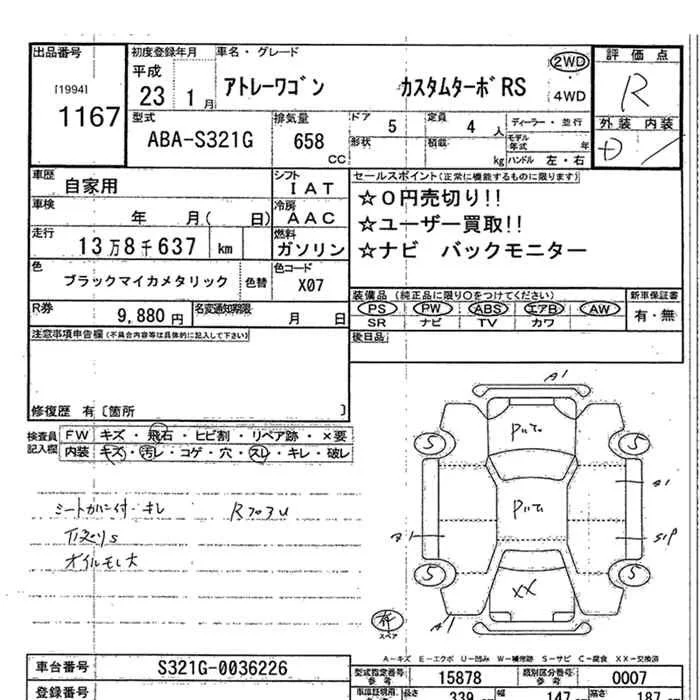 出品番号 初度登録年月 車名・グレード 評価点
[1994] 平成 アトレーワゴン カスタムターボRS 2WD R
1167 23 1月 4WD 外装 内装
型式 排気量 ドア 5 定員 4人 ディーラー・並行 D /
ABA-S321G 658 CC 形状 積載 kg モデル年式 年 ハンドル 左・右
車歴 自家用 シフト IAT セールスポイント(正常に機能するものに限ります)
車検 年 月( 日) 冷房 AAC ☆0円売切り!!
☆ユーザー買取!!
走行 13万8千637 km 燃料 ガソリン ☆ナビ バックモニター
色 ブラックマイカメタリック 色替 色コード X07
R券 9,880円 名変通知期限 月 日
装備品(純正品に限り○をつけてください) 新車保証書
PS PW ABS エアB AW 有・無
SR ナビ TV カワ
注意事項申告欄(不具合内容等は具体的に記入して下さい) 後日品
修復歴 有〔箇所 〕
検査員記入欄 FW キズ・飛石・ヒビ割・リペア跡・×要
内装 キズ・汚レ・コゲ・穴・スレ・キレ・破レ
オイルモレ大
A1
5 5
A1
A1 S1P
5 5
XX
A1
有
スペア
A－キズ E－エクボ U－凹み W－補修跡 S－サビ C－腐食 XX－交換済
車台番号 S321G-0036226 型式指定番号 参考 15878 類別区分番号 参考 0007
登録番号 長さ 339 幅 147 高さ 187